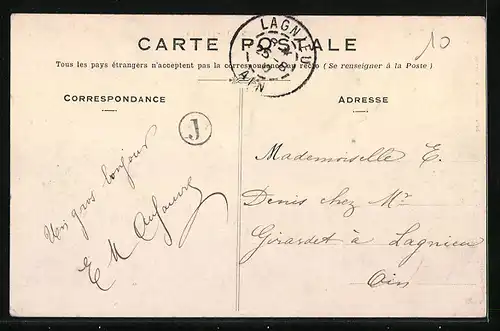 CARTE POSTALE
10
LAGNIEU
AIN
Tous les pays étrangers n'acceptent pas la correspondance au recto (Se renseigner à la Poste)
CORRESPONDANCE
ADRESSE
J
Un gros bonjour
E M
Mademoiselle E.
Denis chez Mr
Girardet à Lagnieu
Ain